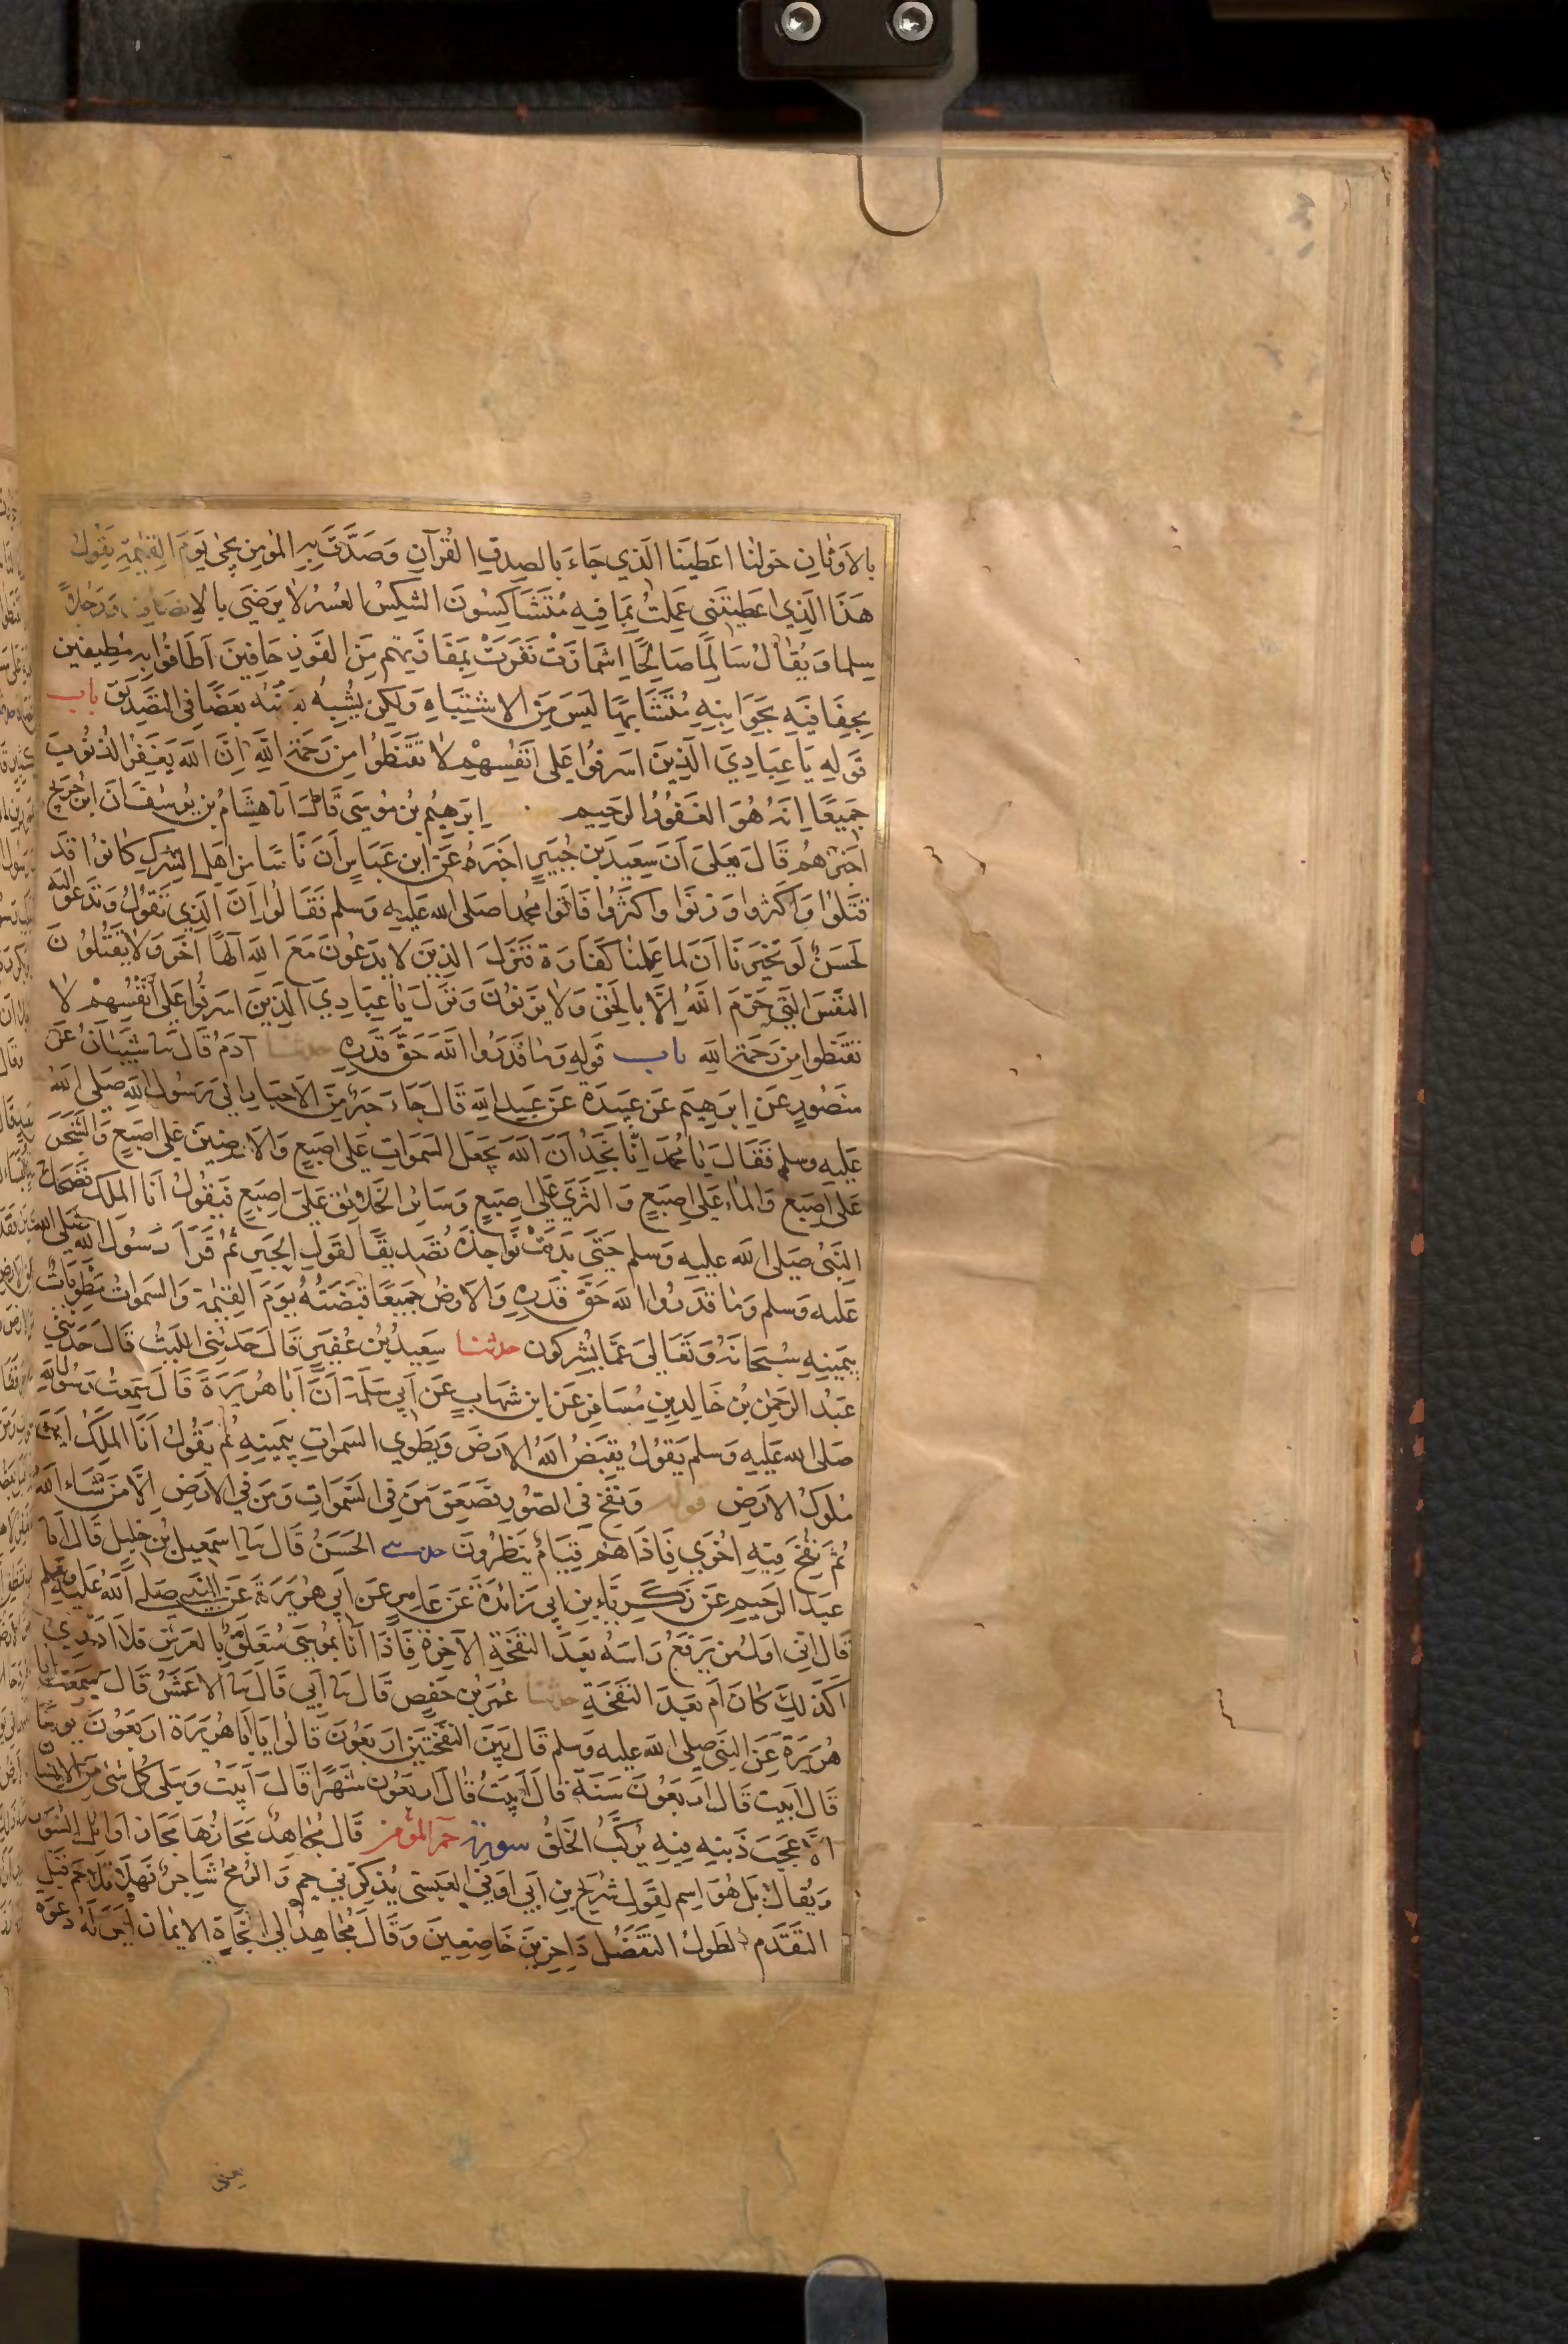 بالاوثان خولنا اعطينا الذي جاء بالصدق القرآن وصدق به المؤمن يجئ يوم القيمة يقول
هذا الذي اعطيتني عملت بما فيه متشاكسون الشكس العسر لا يرضى بالانصاف ورجلا
سلما ويقال سالما صالحا اشمازت نفرت بمفازتهم من الفوز حافين اطافوا به مطيفين
بحفافيه بجوانبه متشابها ليس من الاشتباه ولكن يشبه بعضه بعضا في التصديق باب
قوله يا عبادي الذين اسرفوا على انفسهم لا تقنطوا من رحمة الله ان الله يغفر الذنوب
جميعا انه هو الغفور الرحيم ابرهيم بن موسى قال انا هشام بن يوسف ان ابن جريج
اخبرهم قال يعلى ان سعيد بن جبير اخبره عن ابن عباس ان ناسا من اهل الشرك كانوا قد
قتلوا واكثروا وزنوا واكثروا فاتوا محمدا صلى الله عليه وسلم فقالوا ان الذي تقول وتدعو اليه
لحسن لو تخبرنا ان لما عملنا كفارة فنزل الذين لا يدعون مع الله الها اخر ولا يقتلون
النفس التي حرم الله الا بالحق ولا يزنون ونزل يا عبادي الذين اسرفوا على انفسهم لا
تقنطوا من رحمة الله باب قوله وما قدروا الله حق قدره حدثنا آدم قال ثنا شيبان عن
منصور عن ابرهيم عن عبيدة عن عبد الله قال جاء حبر من الاحبار الى رسول الله صلى الله
عليه وسلم فقال يا محمد انا نجد ان الله يجعل السموات على اصبع والارضين على اصبع والشجر
على اصبع والماء على اصبع والثرى على اصبع وسائر الخلائق على اصبع فيقول انا الملك فضحك
النبي صلى الله عليه وسلم حتى بدت نواجذه تصديقا لقول الحبر ثم قرا رسول الله صلى الله
عليه وسلم وما قدروا الله حق قدره والارض جميعا قبضته يوم القيمة والسموات مطويات
بيمينه سبحانه وتعالى عما يشركون حدثنا سعيد بن عفير قال حدثني الليث قال حدثني
عبد الرحمن بن خالد بن مسافر عن ابن شهاب عن ابي سلمة ان ابا هريرة قال سمعت رسول الله
صلى الله عليه وسلم يقول يقبض الله الارض ويطوي السموات بيمينه ثم يقول انا الملك اين
ملوك الارض قوله ونفخ في الصور فصعق من في السموات ومن في الارض الا من شاء الله
ثم نفخ فيه اخرى فاذا هم قيام ينظرون حدثني الحسن قال ثنا اسمعيل بن خليل قال انا
عبد الرحيم عن زكرياء بن ابي زائدة عن عامر عن ابي هريرة عن النبي صلى الله عليه وسلم
قال اني اول من يرفع راسه بعد النفخة الاخرة فاذا انا بموسى متعلق بالعرش فلا ادري
اكذلك كان ام بعد النفخة حدثنا عمر بن حفص قال ثنا ابي قال ثنا الاعمش قال سمعت ابا
هريرة عن النبي صلى الله عليه وسلم قال بين النفختين اربعون قالوا يا ابا هريرة اربعون يوما
قال ابيت قال اربعون سنة قال ابيت قال اربعون شهرا قال ابيت ويبلى كل شئ من الانسان
الا عجب ذنبه فيه يركب الخلق سورة حم المؤمن قال مجاهد مجازها مجاز اوائل السور
ويقال بل هو اسم لقول شريح بن ابي اوفى العبسي يذكرني حم والرمح شاجر فهلا تلا حم قبل
التقدم الطول التفضل داخرين خاضعين وقال مجاهد الى النجاة الايمان ليس له دعوة
يعني